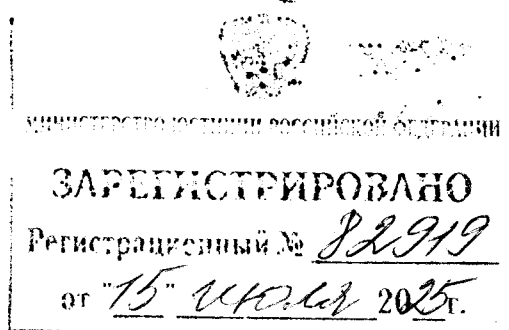 МИНИСТЕРСТВО ЮСТИЦИИ РОССИЙСКОЙ ФЕДЕРАЦИИ
ЗАРЕГИСТРИРОВАНО
Регистрационный № 82919
от "15" июля 2025г.